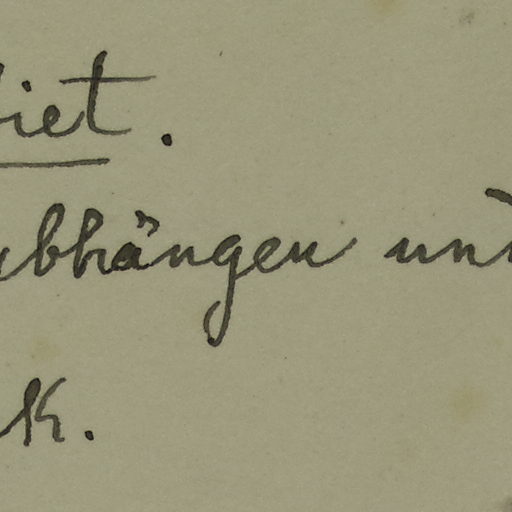 iet.
abhängen und
k.